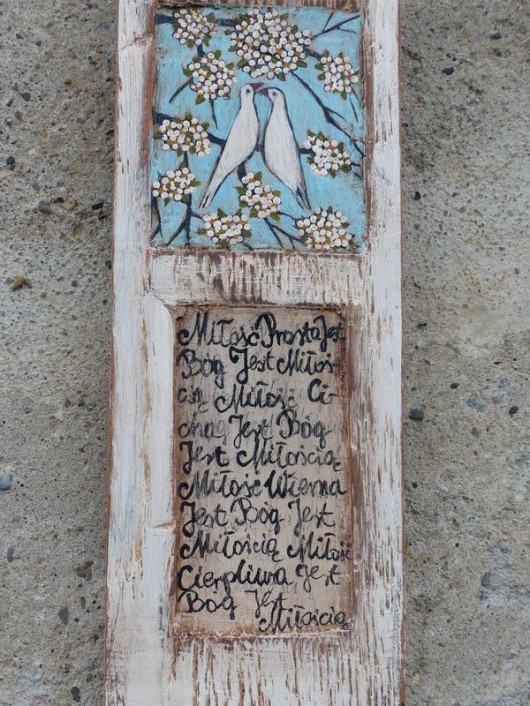 Miłość Prosta Jest
Bóg Jest Miłoś
cią Miłość Ci
cha Jest Bóg
Jest Miłością
Miłość Wierna
Jest Bóg Jest
Miłością Miłość
Cierpliwa Jest
Bóg Jest
Miłością